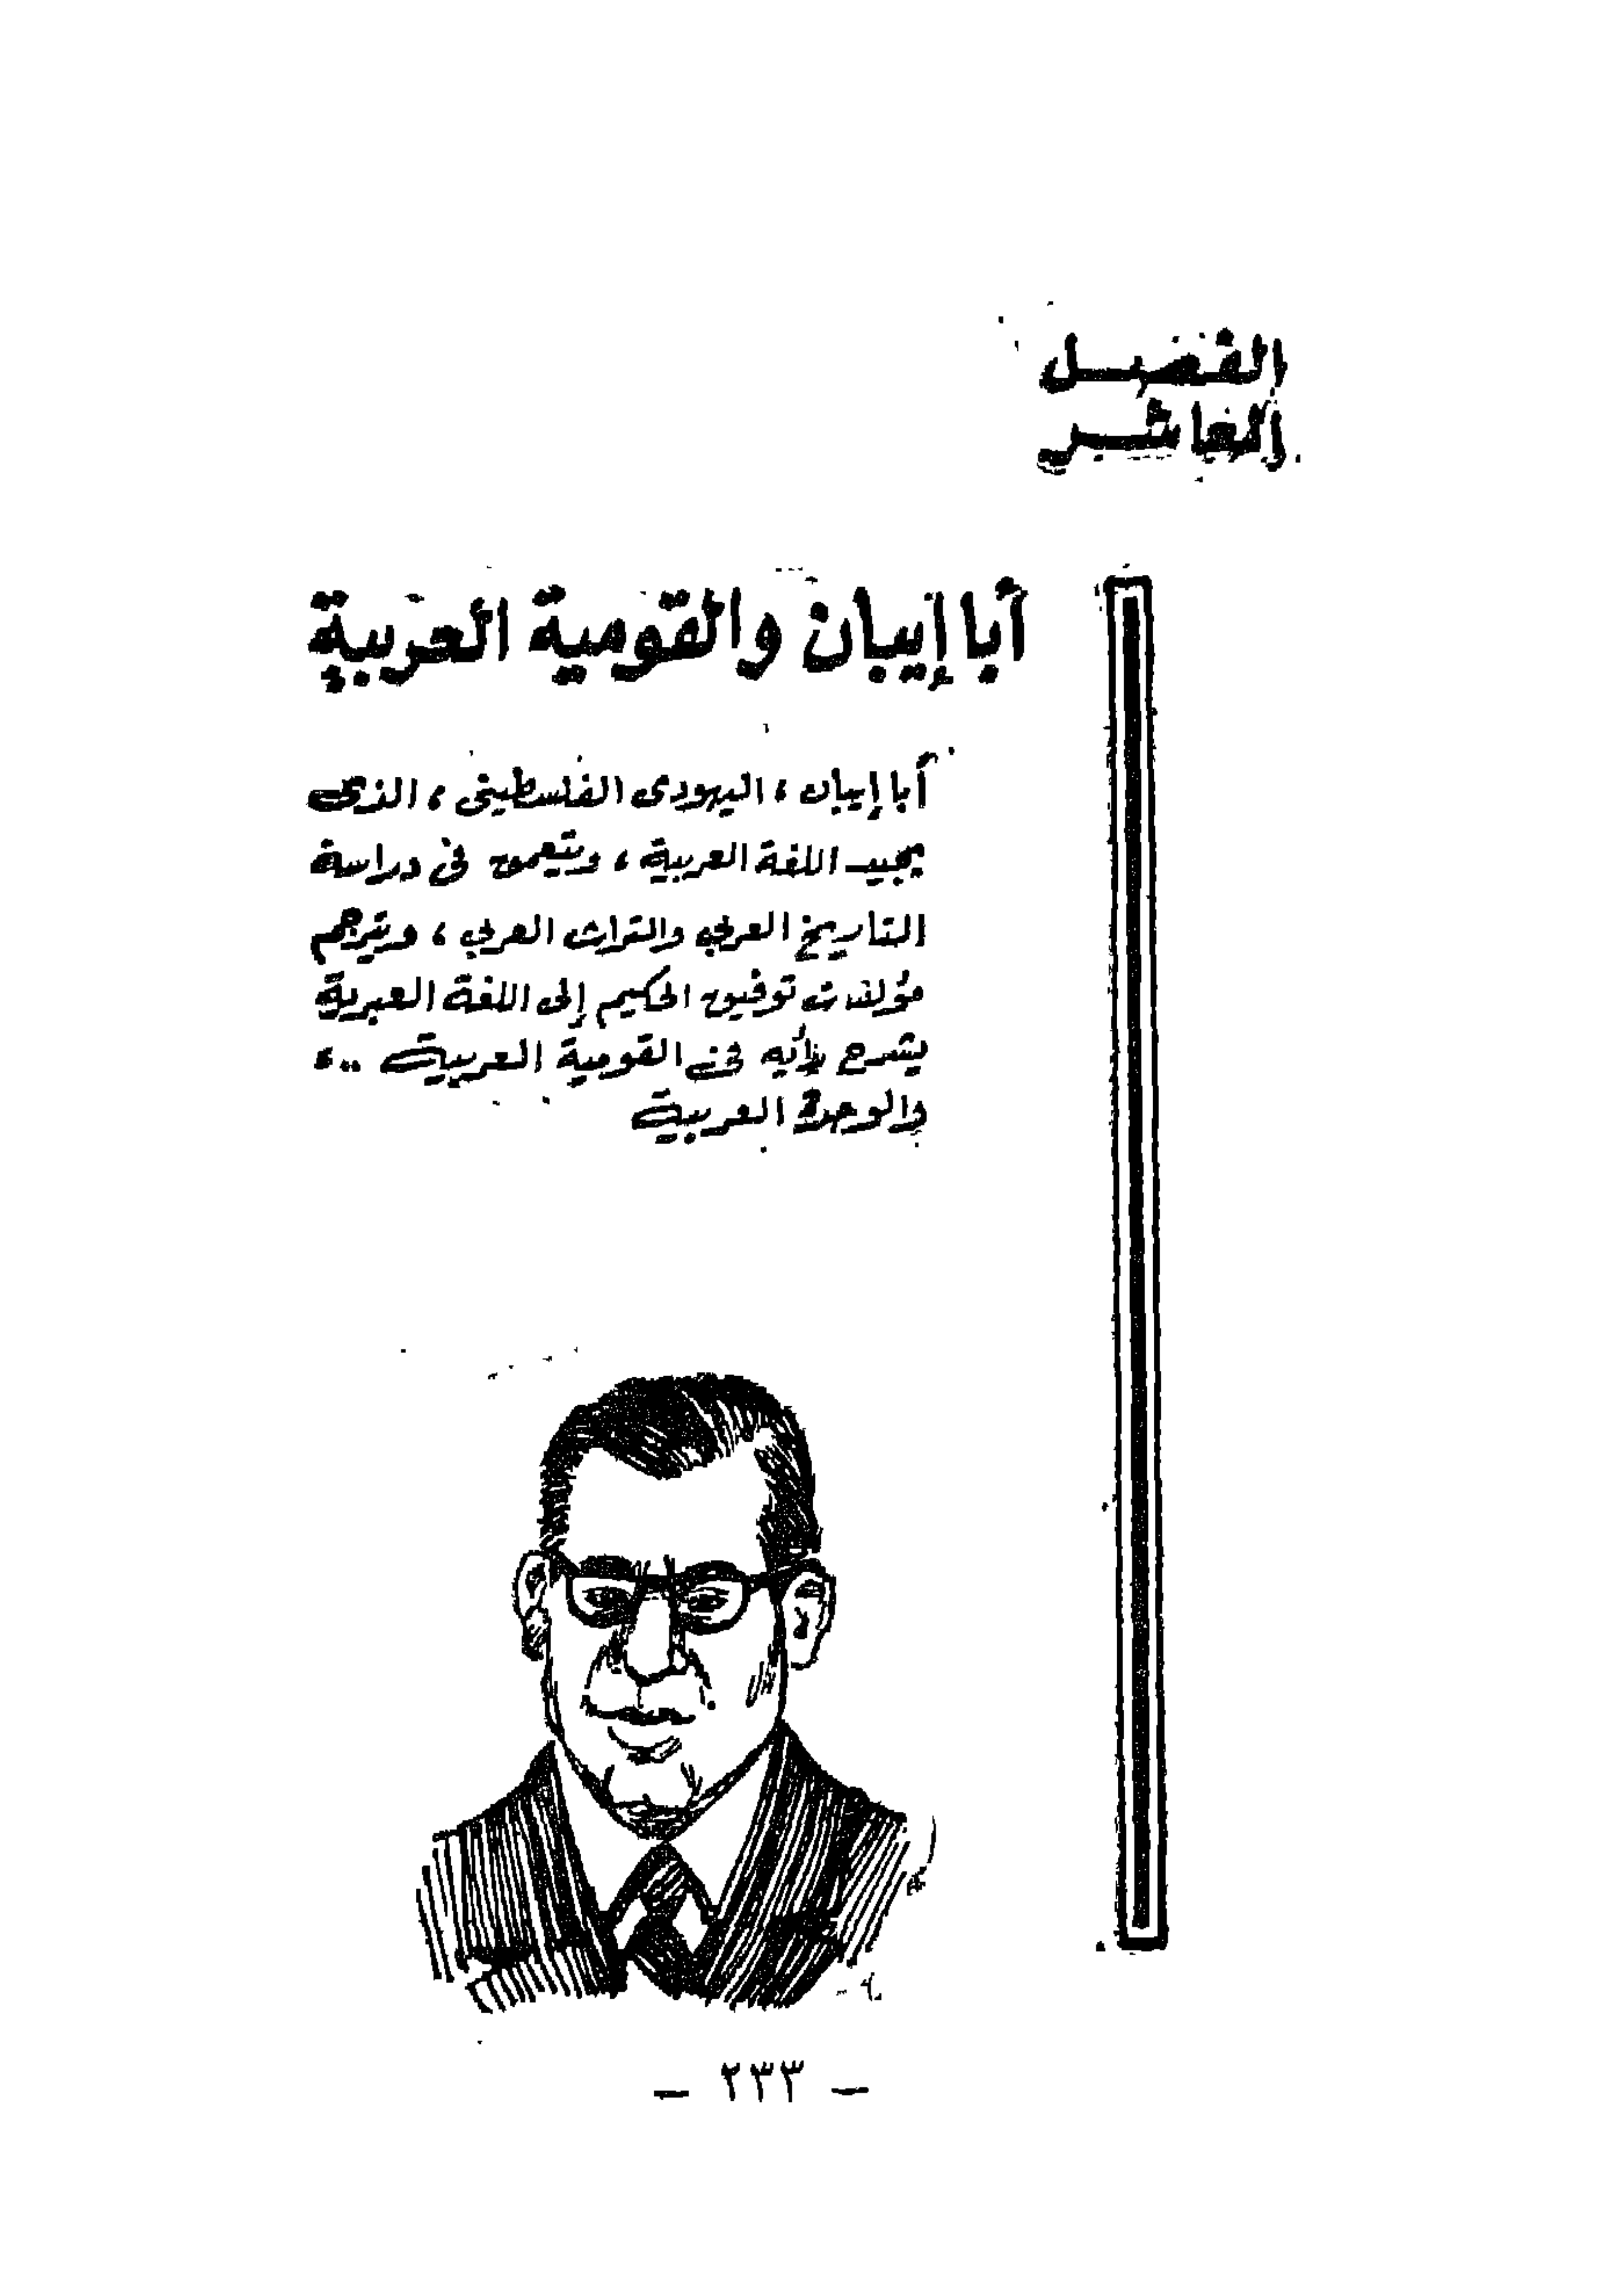 الفصل
العاشر
أبا إيبان والقومية العربية
أبا إيبان ، اليهودى الفلسطينى ، الذى
يجيد اللغة العربية ، ويتعمق فى دراسة
التاريخ العربي والتراث العربي ، ويترجم
مؤلفات توفيق الحكيم إلى اللغة العبرية
يشرح رأيه فى القومية العربية ..،
والوحدة العربية
— ٢٣٣ —